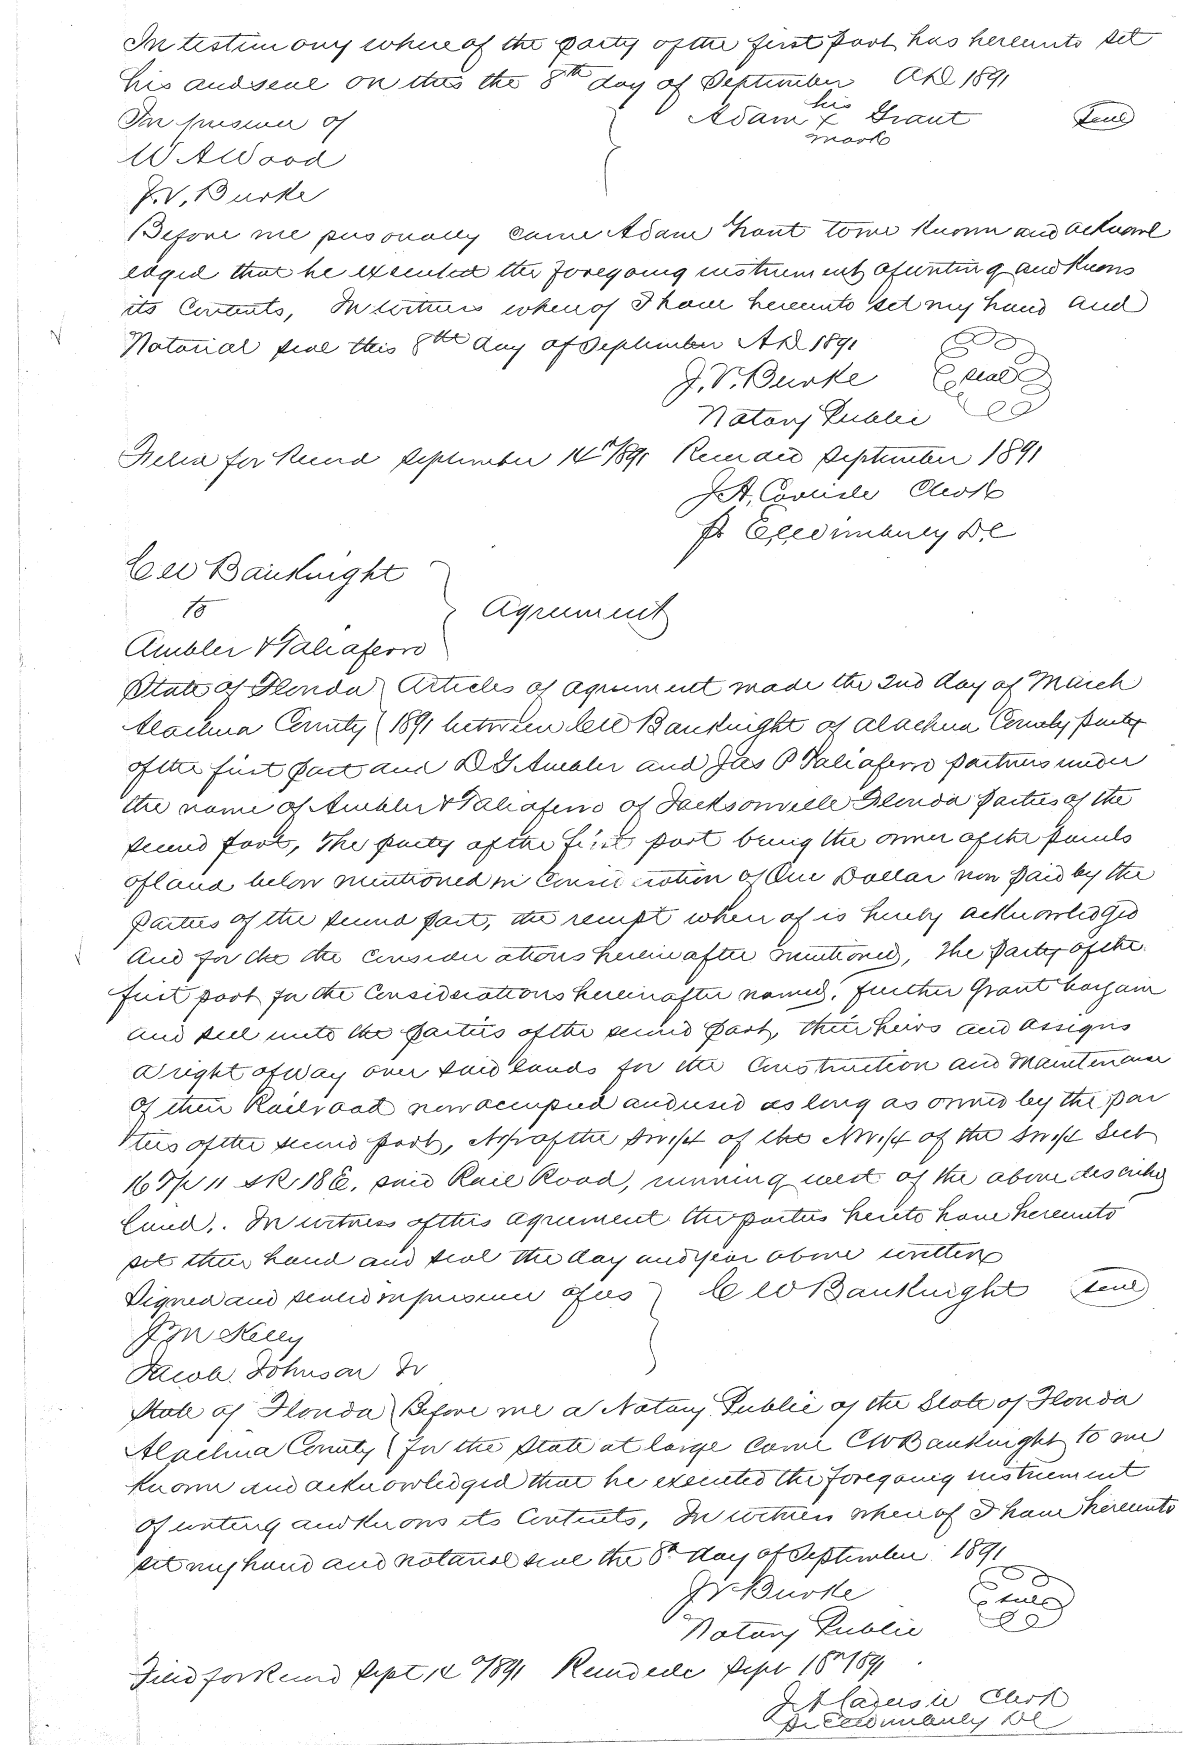 In testimony whereof the party of the first part has hereunto set
his and seal on this the 8th day of September AD 1891
In presence of Adam his x mark Grant Seal
W A Wood
J. V. Burke
Before me personally came Adam Grant to me known and acknowl
edged that he executed the foregoing instrument of writing and knows
its Contents, In witness whereof I have hereunto set my hand and
Notarial seal this 8th day of September AD 1891
J. V. Burke seal
Notary Public
Filed for Record September 14th 1891 Recorded September 1891
J. A. Carlisle Clerk
D.C
C W Bauknight
to Agreement
Ambler & Taliaferro
State of Florida Articles of agreement made the 2nd day of March
Alachua County 1891 between C W Bauknight of Alachua County party
of the first part and D G Ambler and Jas P Taliaferro partners under
the name of Ambler & Taliaferro of Jacksonville Florida parties of the
second part, The party of the first part being the owner of the parcels
of land below mentioned in consideration of One Dollar now paid by the
parties of the second part, the receipt whereof is hereby acknowledged
and for the the considerations hereinafter mentioned, The party of the
first part for the considerations hereinafter named, further Grant bargain
and sell unto the parties of the second part, their heirs and assigns
a right of way over said lands for the Construction and Maintenance
of their Railroad now occupied and used as long as owned by the par
ties of the second part, of the SW1/4 of the NW1/4 of the SW1/4 Sect
16 T/p 11 S R 18 E. said Rail Road, running west of the above described
land. In witness of this agreement the parties hereto have hereunto
set their hand and seal the day and year above written
Signed and sealed in presence of us C W Bauknight Seal
J M Kelly
Jacob Johnson Jr
State of Florida Before me a Notary Public of the State of Florida
Alachua County for the State at large came C W Bauknight to me
known and acknowledged that he executed the foregoing instrument
of writing and knows its Contents, In witness whereof I have hereunto
set my hand and notarial seal the 8th day of September 1891
J V Burke seal
Notary Public
Filed for Record Sept 14th 1891 Recorded Sept 18th 1891
J A Carlisle Clerk
DC